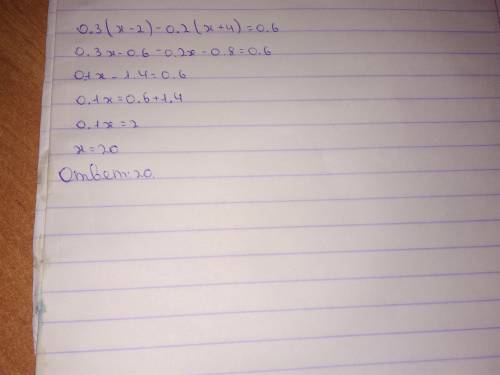 0.3(x-2)-0.2(x+4)=0.6
0.3x-0.6-0.2x-0.8=0.6
0.1x-1.4=0.6
0.1x=0.6+1.4
0.1x=2
x=20
Ответ:20